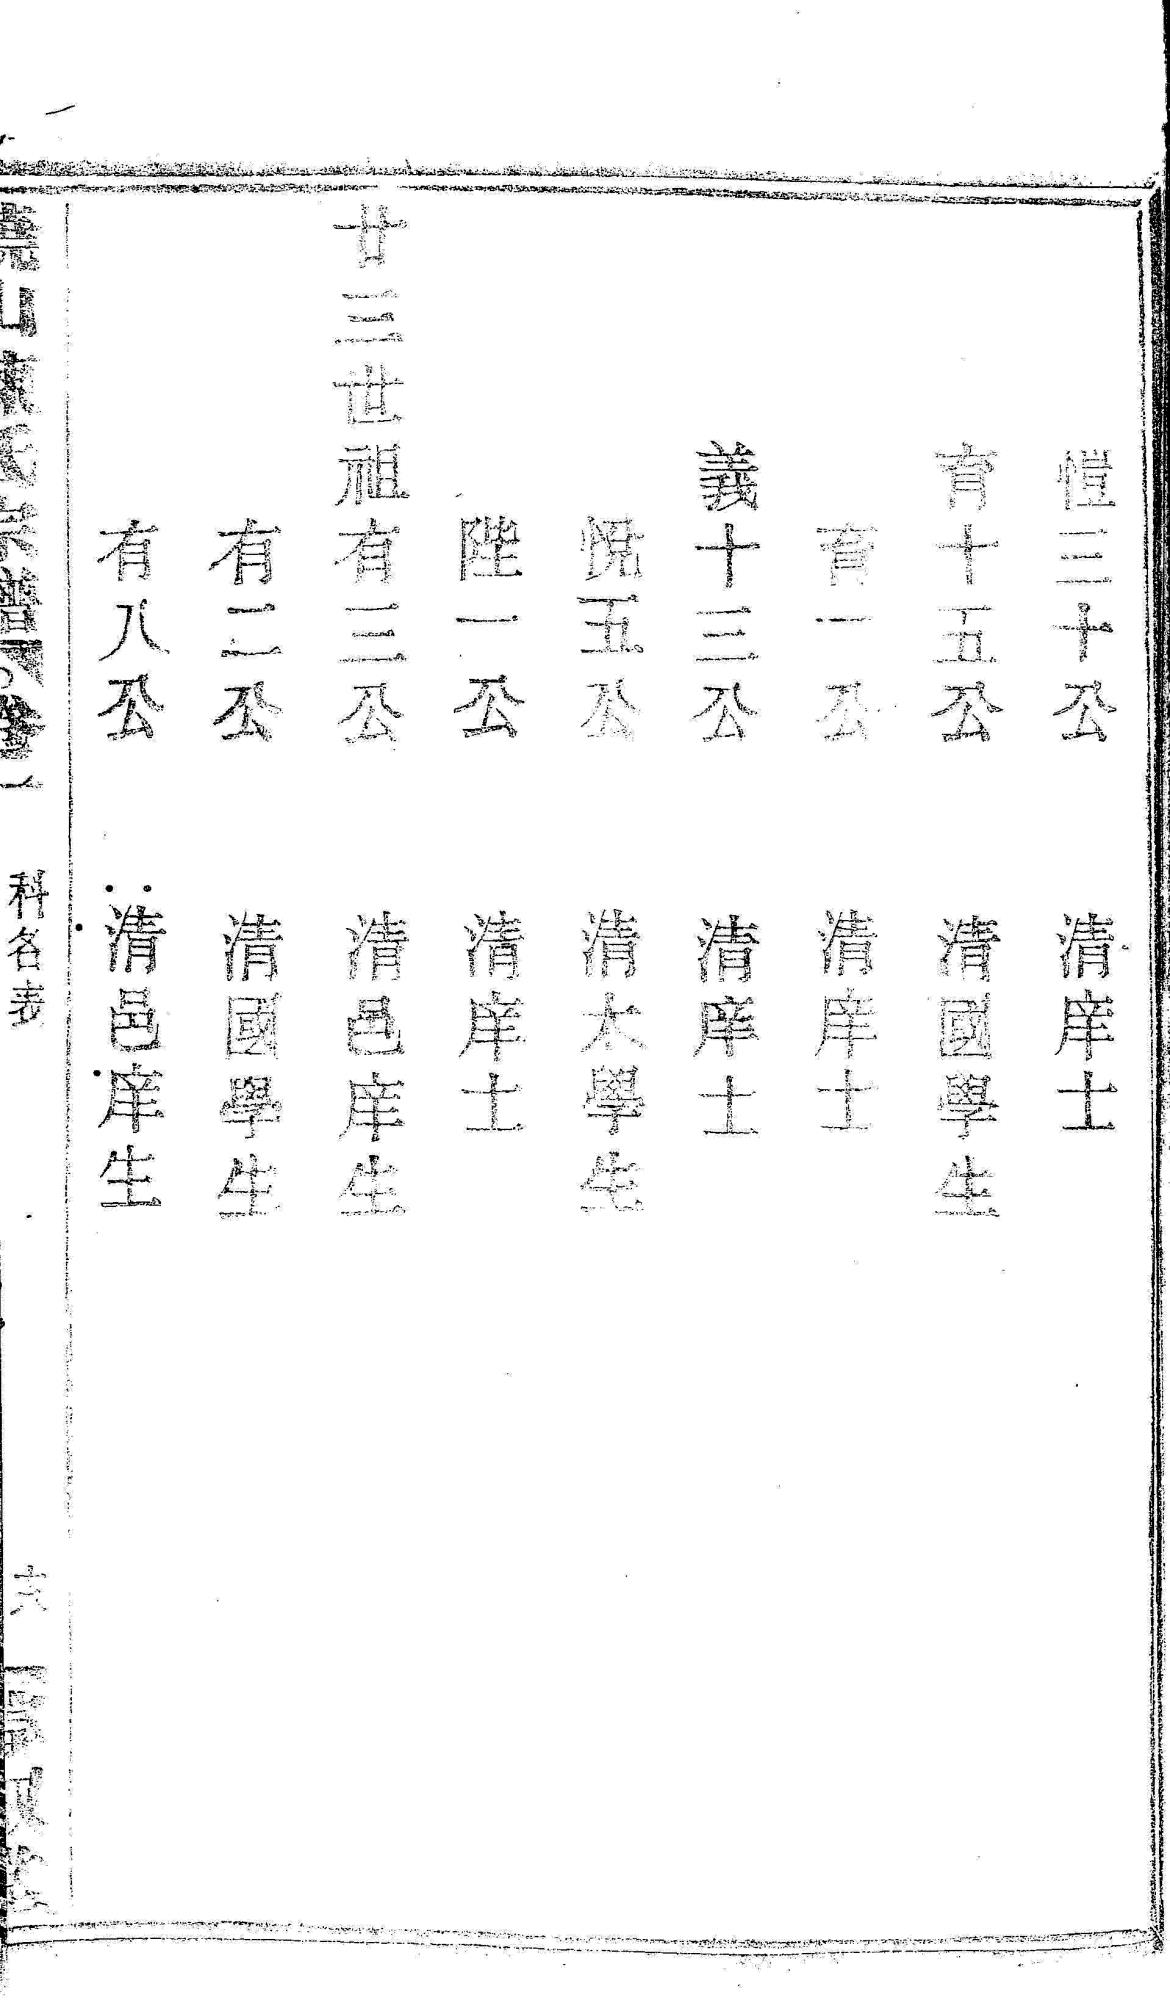 愷三十公　清庠士
育十五公　清國學生
育一公　清庠士
義十三公　清庠士
悅五公　清太學生
陞一公　清庠士
廿三世祖有三公　清邑庠生
有二公　清國學生
有八公　清邑庠生
山 氏宗譜 卷一　科名表　十六